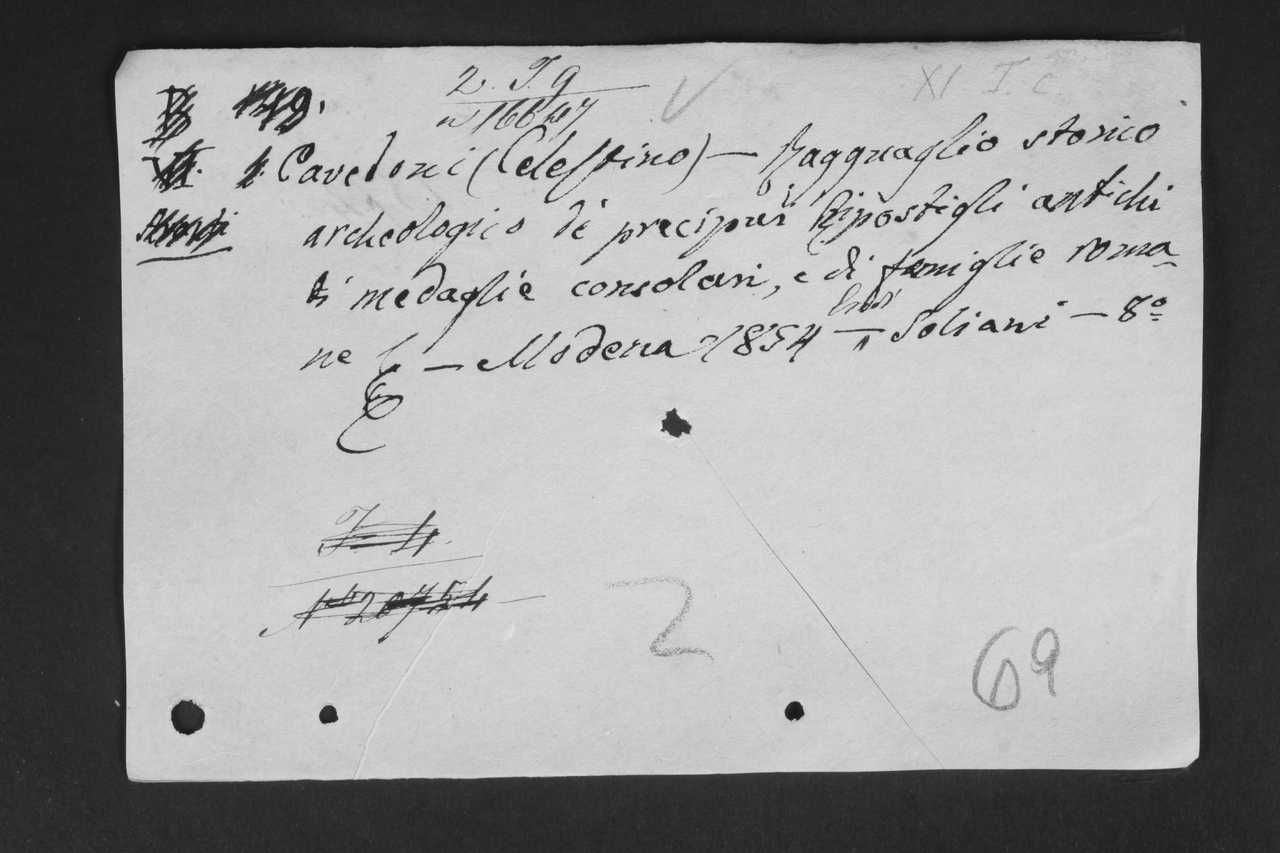 2. T. 9
XI I. c.
149.
n 16647
Cavedoni (Celestino) — Ragguaglio storico
archeologico di precipui Ripostigli antichi
di medaglie consolari, e di famiglie roma-
ne &c — Modena 1854 — Eredi Soliani — 8º
T. 4.
Nº 20754
2
69